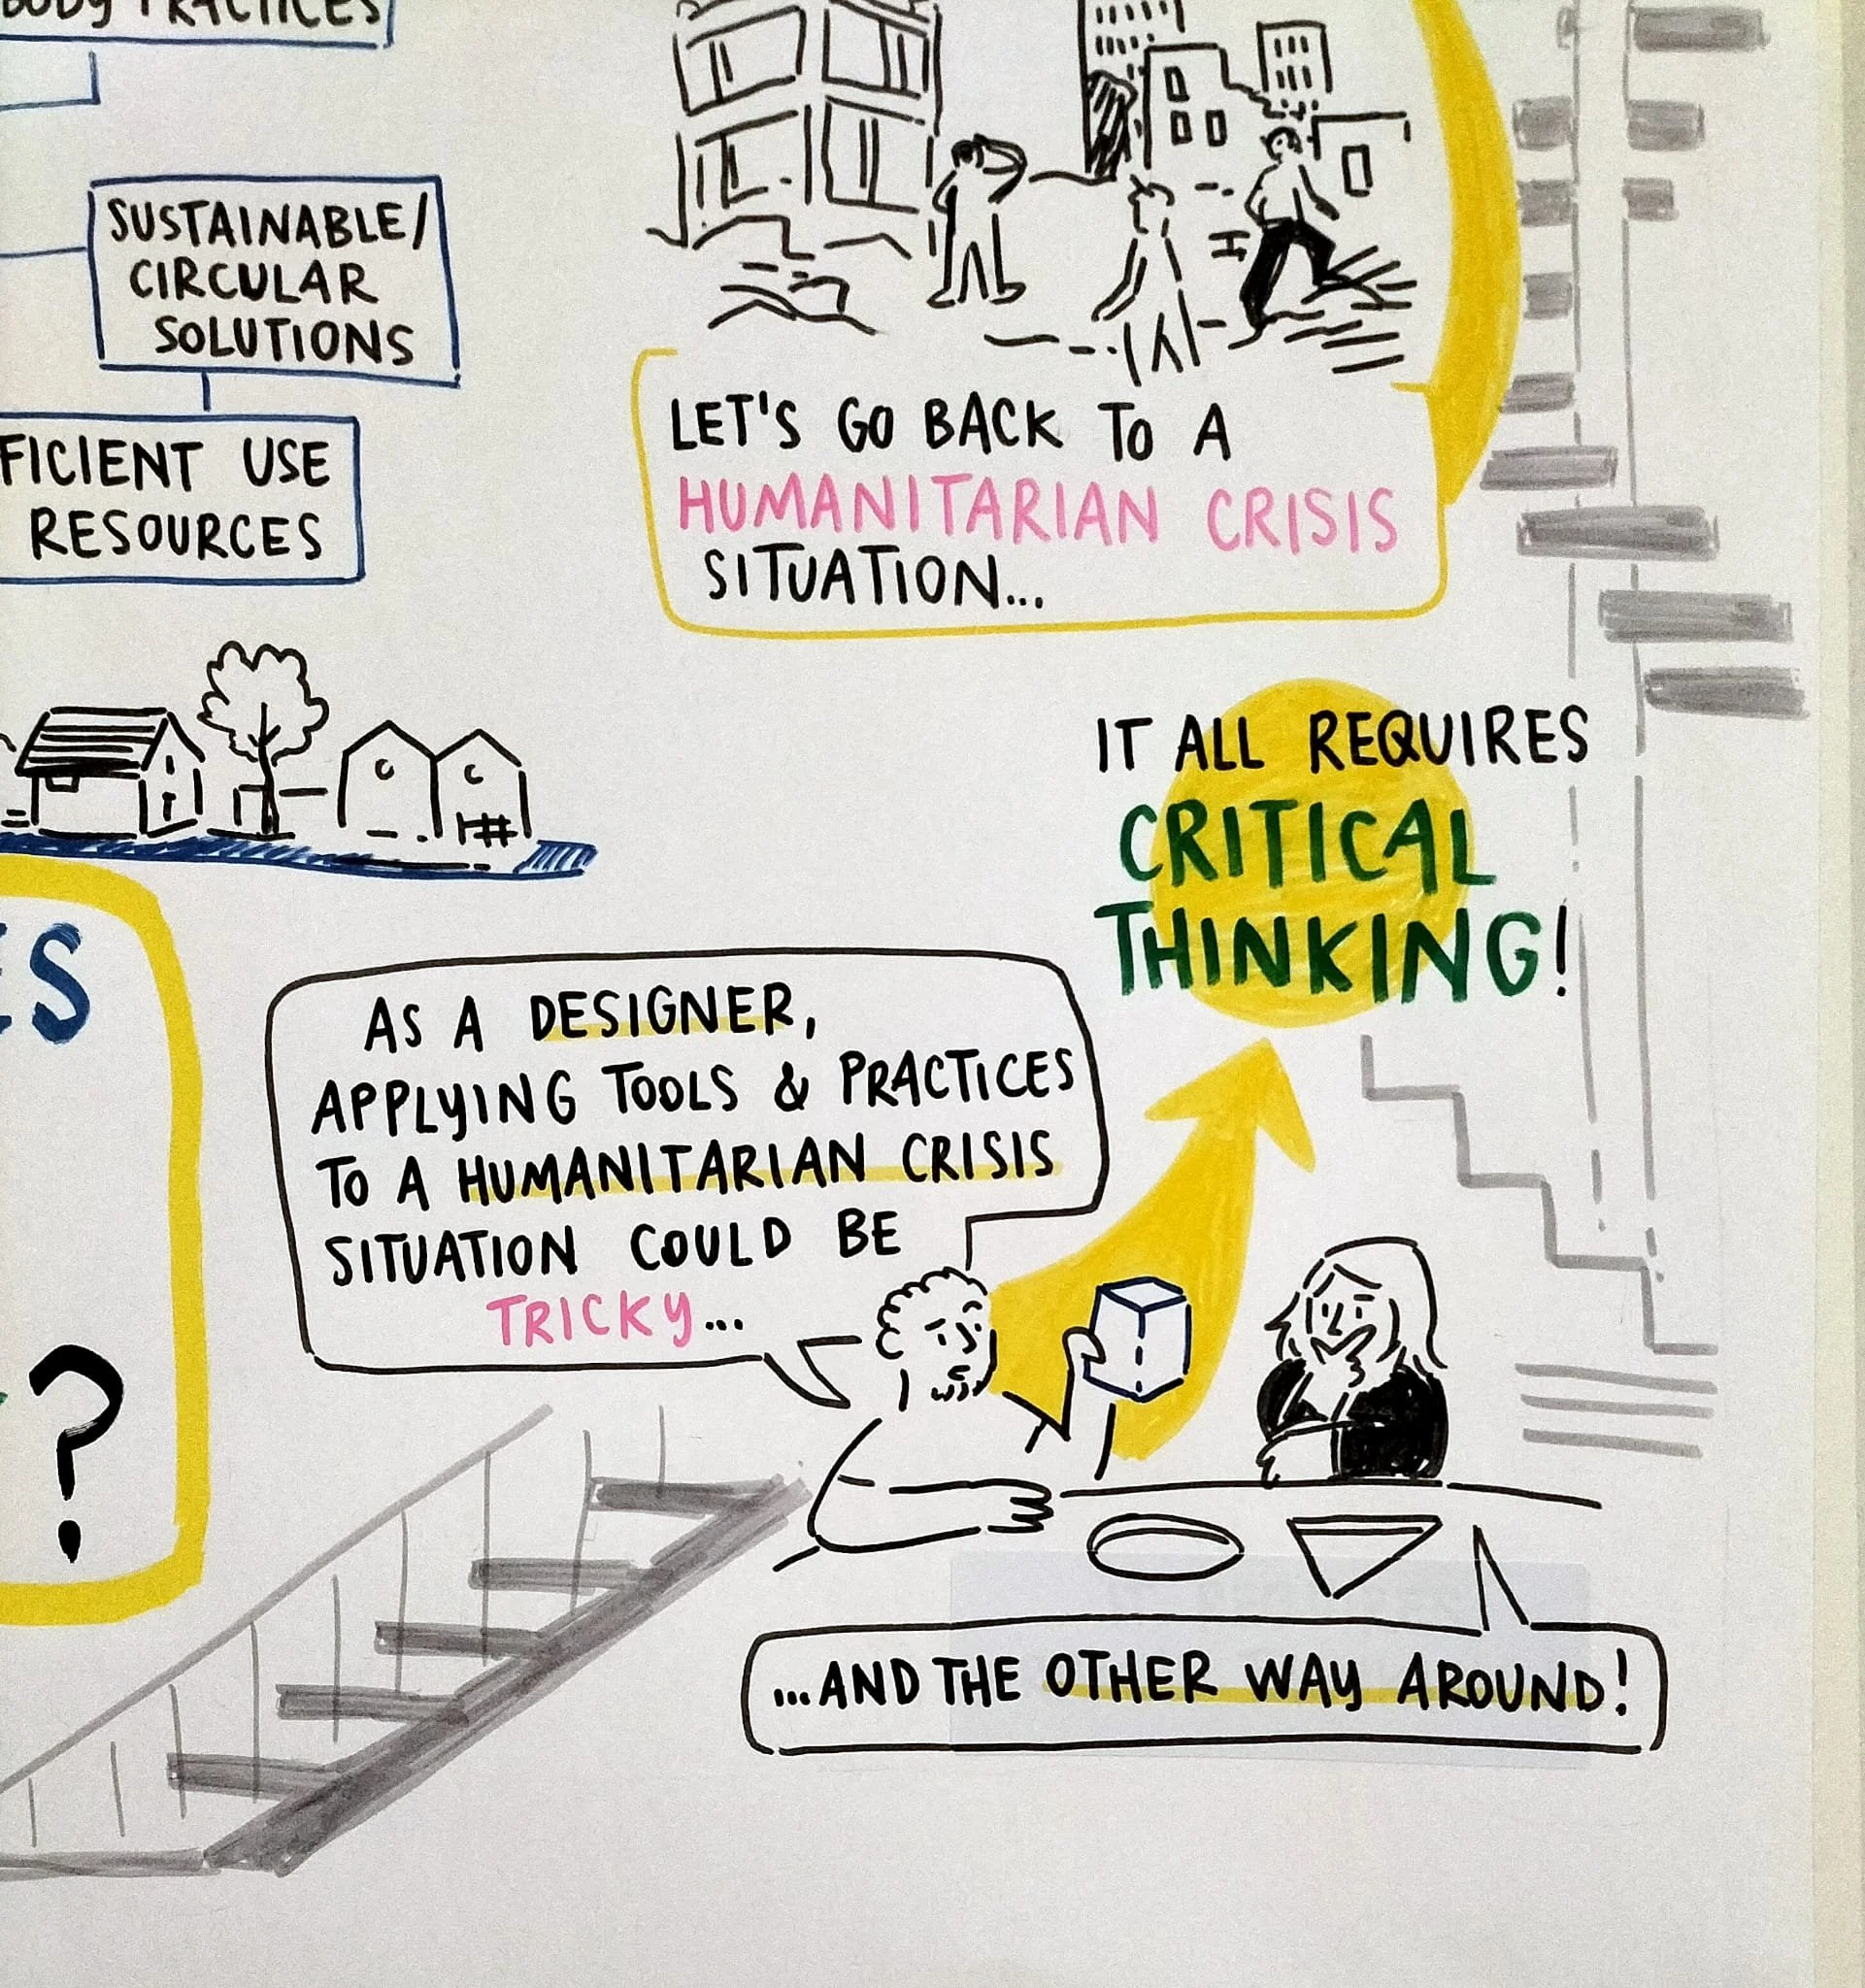 PRACTICES
SUSTAINABLE/
CIRCULAR
SOLUTIONS
FICIENT USE
RESOURCES
LET'S GO BACK TO A
HUMANITARIAN CRISIS
SITUATION...
IT ALL REQUIRES
CRITICAL
THINKING!
ES
?
AS A DESIGNER,
APPLYING TOOLS & PRACTICES
TO A HUMANITARIAN CRISIS
SITUATION COULD BE
TRICKY...
...AND THE OTHER WAY AROUND!